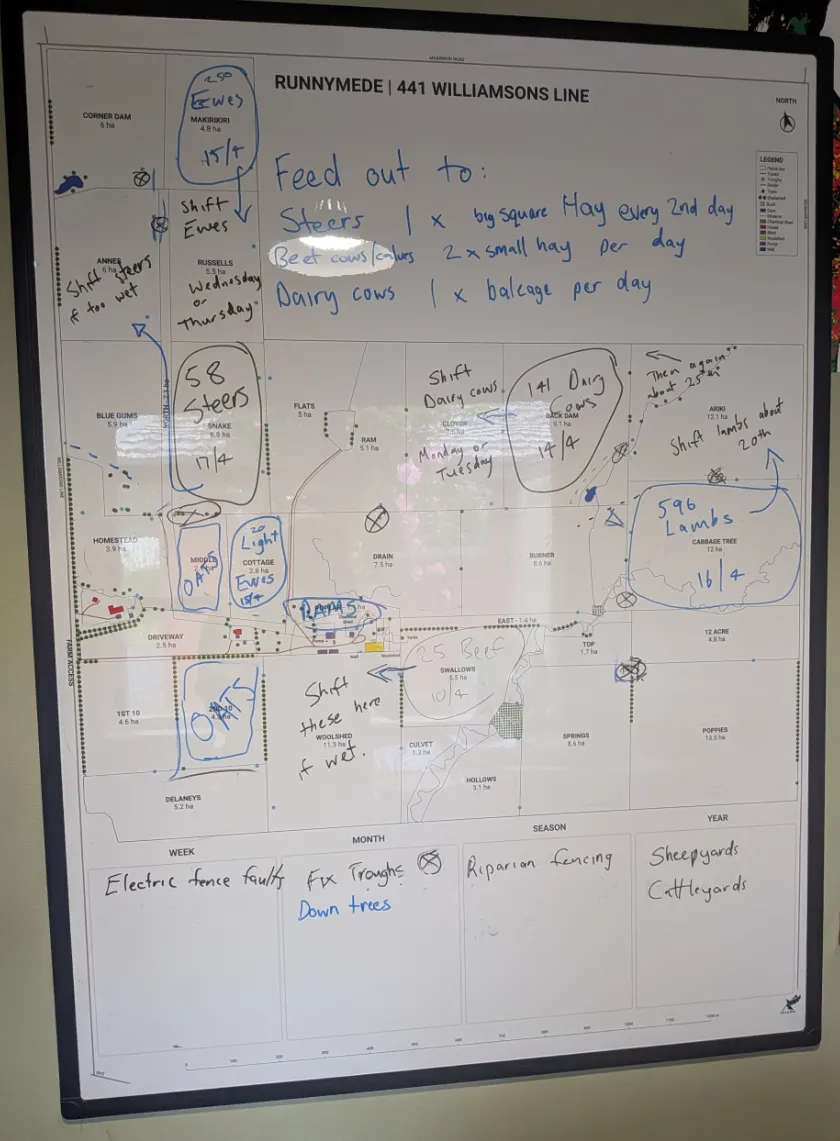 MAKIRIKIRI ROAD
RUNNYMEDE | 441 WILLIAMSONS LINE
NORTH
CORNER DAM
6 ha
250
Ewes
MAKIRIKIRI
4.8 ha
15/4
LEGEND
Feed out to:
Steers 1 x big square Hay every 2nd day
Beef cows/calves 2 x small hay per day
Dairy cows 1 x baleage per day
Shift
Ewes
RUSSELLS
5.5 ha
Wednesday
or
Thursday
ANNES
6 ha
Shift Steers
if too wet
BLUE GUMS
5.9 ha
58
Steers
SNAKE
17/4
FLATS
5 ha
RAM
5.1 ha
Shift
Dairy cows
CLOVER
Monday or
Tuesday
141 Dairy
Cows
BACK DAM
9.1 ha
14/4
Then again
about 25th
ARIKI
12.1 ha
Shift lambs about
20th
WILLIAMSONS LINE
HOMESTEAD
3.9 ha
MIDDLE
OATS
20
Light
COTTAGE
2.8 ha
Ewes
15/4
DRAIN
7.5 ha
BURNER
8.6 ha
596
Lambs
CABBAGE TREE
12 ha
16/4
RAMS
DRIVEWAY
2.5 ha
FARM ACCESS
EAST - 1.4 ha
TOP
1.7 ha
12 ACRE
4.8 ha
25 Beef
SWALLOWS
5.5 ha
10/4
1ST 10
4.6 ha
2ND 10
OATS
Shift
these here
WOOLSHED
11.3 ha
if wet.
CULVET
1.3 ha
SPRINGS
6.6 ha
POPPIES
13.5 ha
HOLLOWS
3.1 ha
DELANEYS
5.2 ha
WEEK
Electric fence faults
MONTH
Fix Troughs
Down trees
SEASON
Riparian fencing
YEAR
Sheepyards
Cattleyards